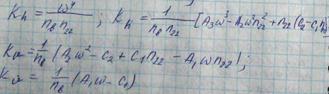 K_h = ω⁴ / (n_в n_22) ; K_h = 1 / (n_в n_22) [A_3ω³ - A_2ω²n_22² + n_22(C_2 - C_1n_
K_α = 1/n_в (A_2ω² - C_2 + C_1n_22 - A_1ωn_22);
K_ω = 1/n_в (A_1ω - C_1)